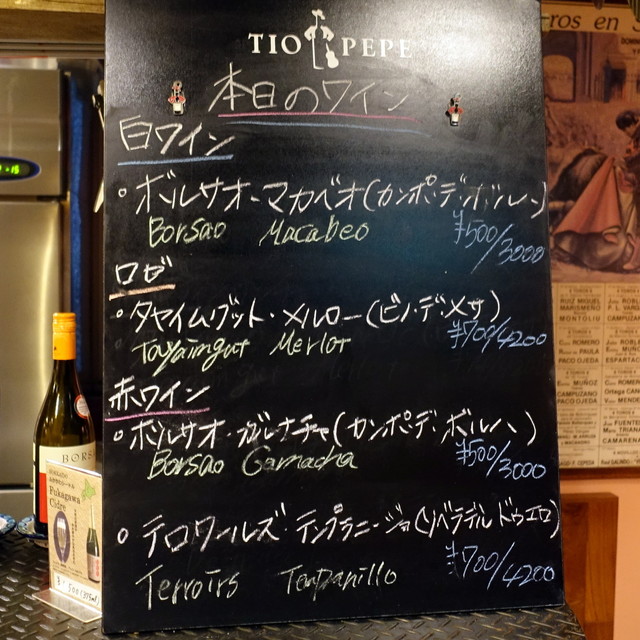 TIO PEPE
本日のワイン
白ワイン
・ボルサオ・マカベオ(カンポ・デ・ボルハ)
Borsao Macabeo ¥500/3000
ロゼ
・タヤイムグット・メルロー(ビノ・デ・メサ)
Tayaimgut Merlot ¥700/4200
赤ワイン
・ボルサオ・ガルナチャ(カンポデ・ボルハ)
Borsao Garnacha ¥500/3000
・テロワールズ・テンプラニージョ(リベラデル ドゥエロ)
Terroirs Tenpanillo ¥700/4200
BORS
Fukagawa
Cidre
ros en
RUIZ MIGUEL
MONTOLIU
CURRO ROMERO
PACO OJEDA
CAMPUZANO
PACO OJEDA
CAMPUZAN
CAMAREN